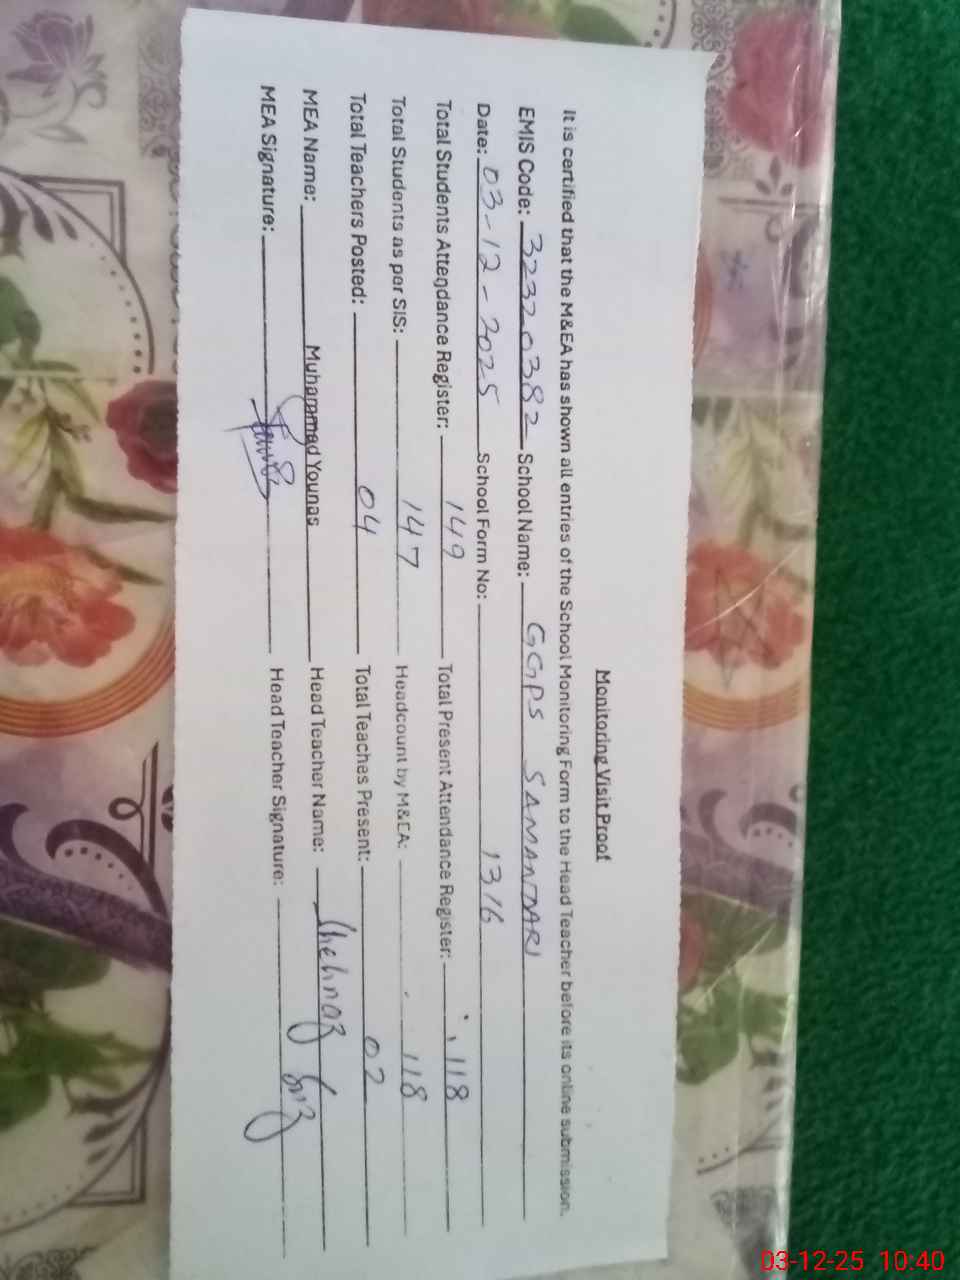 Monitoring Visit Proof
It is certified that the M&EA has shown all entries of the School Monitoring Form to the Head Teacher before its online submission.
EMIS Code: 32320382 School Name: GGPS SAMANDARI
Date: 03-12-2025 School Form No: 1316
Total Students Attendance Register: 149 Total Present Attendance Register: 118
Total Students as per SIS: 147 Headcount by M&EA: 118
Total Teachers Posted: 04 Total Teaches Present: 02
MEA Name: Muhammad Younas Head Teacher Name: Shehnaz
MEA Signature: Head Teacher Signature:
03-12-25 10:40